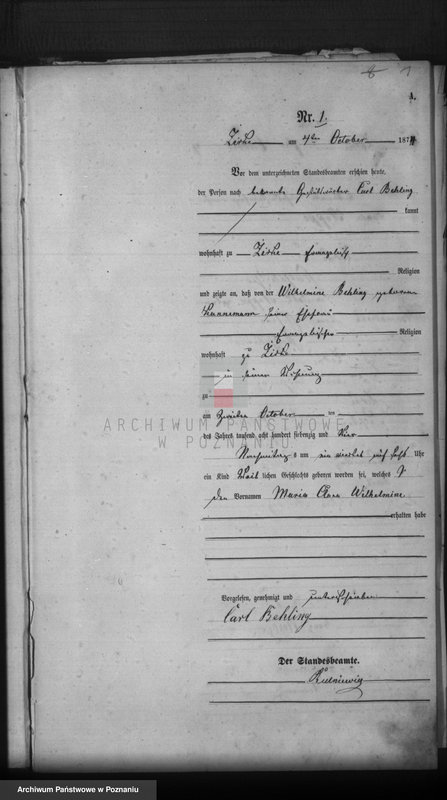 8 1
A.
Nr. 1.
Zirke am 4ten October 1874
Vor dem unterzeichneten Standesbeamten erschien heute,
der Person nach bekannt Carl Behling
kannt
wohnhaft zu Zirke evangelisch
Religion
und zeigte an, daß von der Wilhelmine Behling geborene
Hannemann seiner Ehefrau
evangelischer Religion
wohnhaft zu Zirke
in seiner Wohnung
zu
am zweiten October ten
des Jahres tausend acht hundert siebenzig und vier
Nachmittags um ein viertel auf Uhr
ein Kind weiblichen Geschlechts geboren worden sei, welches
den Vornamen Maria Clara Wilhelmine
erhalten habe
ARCHIWUM PAŃSTWOWE
W POZNANIU
Vorgelesen, genehmigt und unterschrieben
Carl Behling
Der Standesbeamte.
Archiwum Państwowe w Poznaniu